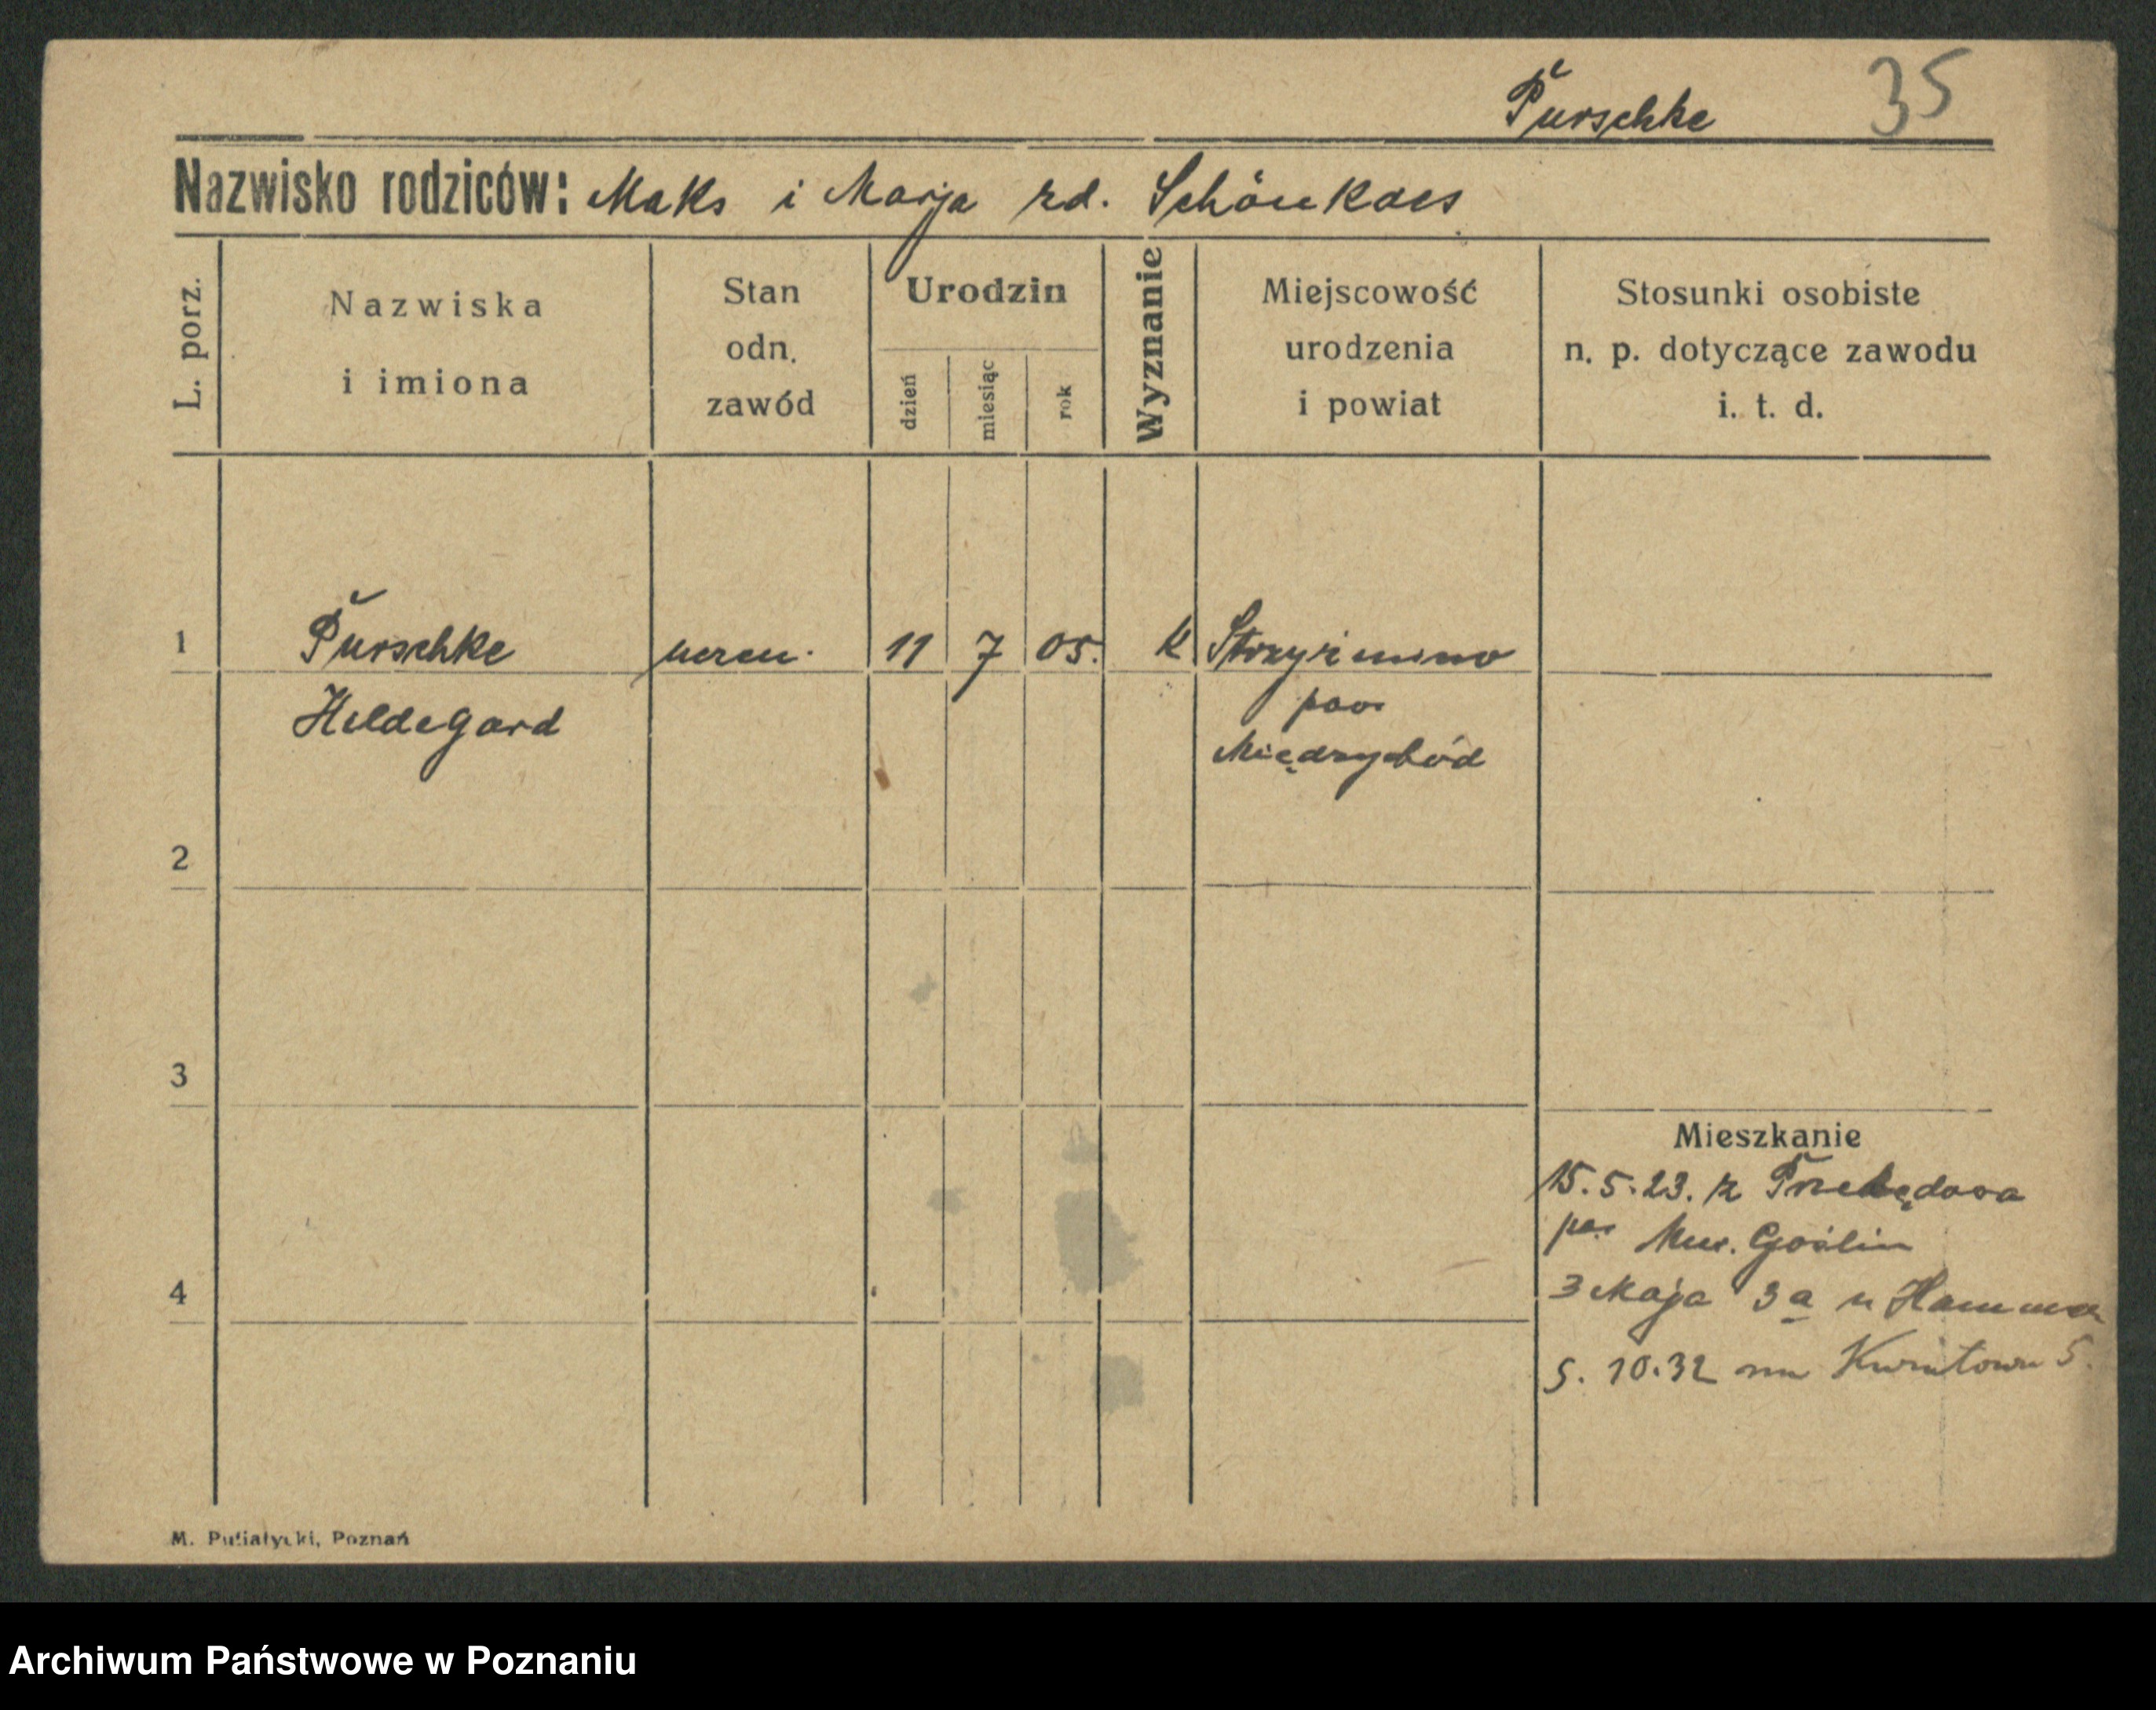 Purschke 35
Nazwisko rodziców: Maks i Marja rd. Schönknes
L. porz.
Nazwiska
i imiona
Stan
odn.
zawód
Urodzin
dzień
miesiąc
rok
Wyznanie
Miejscowość
urodzenia
i powiat
Stosunki osobiste
n. p. dotyczące zawodu
i. t. d.
1 Purschke uczen. 11 7 05. K Strzyżmino
Hildegard pow
Międzychód
2
3
Mieszkanie
15.5.23. z Przebędowa
pow Mur. Goślin
4
3 Maja 3a u Hamma
5.10.32 na Kwiatowa 5.
M. Putiatycki, Poznań
Archiwum Państwowe w Poznaniu